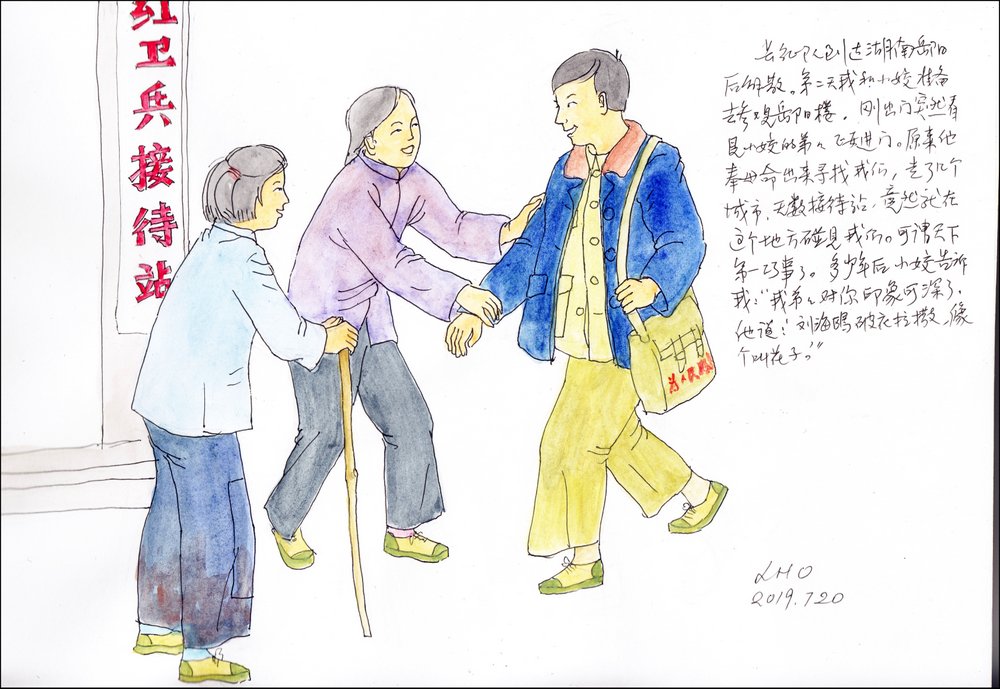 红卫兵接待站
长征队到达湖南岳阳
后解散。第二天我和小姣准备
去参观岳阳楼，刚出门突然看
见小姣的弟弟飞奔进门。原来他
奉母命出来寻找我们，走了几个
城市，无数接待站，竟然就在
这个地方碰见我们。可谓天下
第一巧事了。多少年后小姣告诉
我：“我弟弟对你印象可深了，
他道：刘海鸥破衣拉撒，像
个叫花子。”
为人民服
LHO
2019.7.20